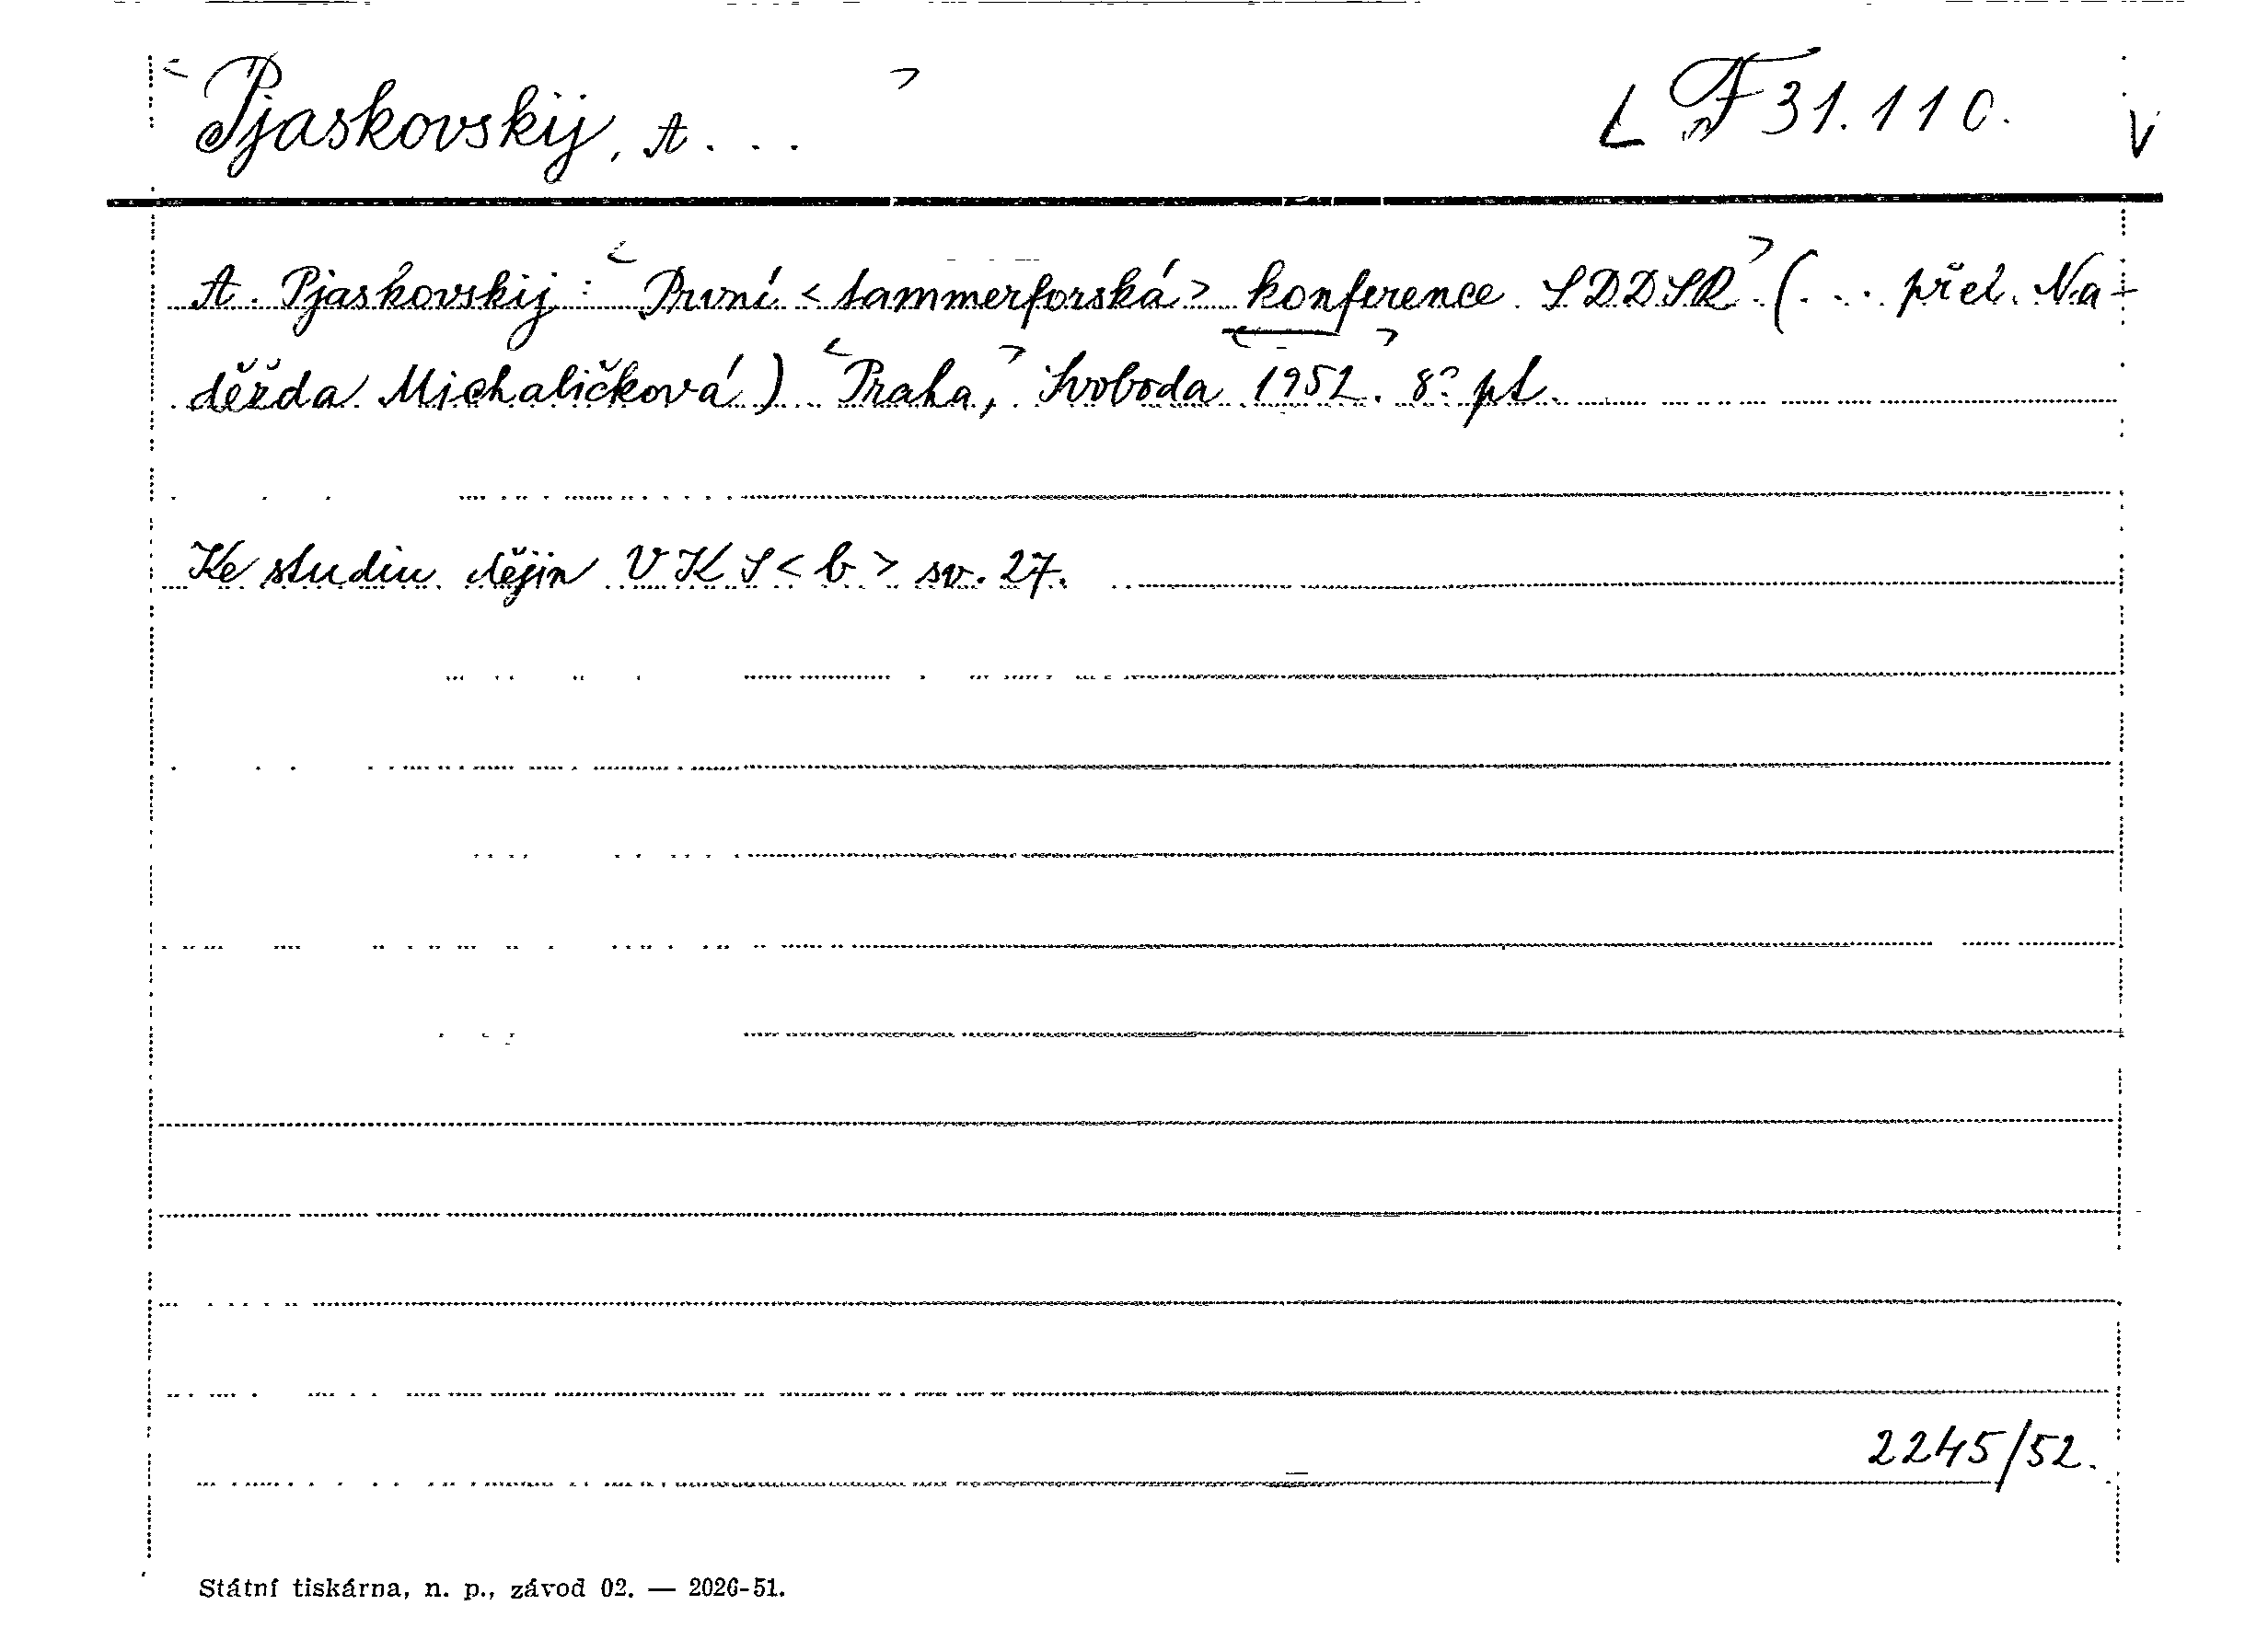 Pjaskovskij, A... L F 31.110. V
A. Pjaskovskij: První <tammerforská> konference SDDSR (... přel. Na-
děžda Michaličková) Praha, Svoboda 1952. 8° pt.
Ke studiu dějin VKS<b> sv. 27.
2245/52.
Státní tiskárna, n. p., závod 02. — 2026-51.